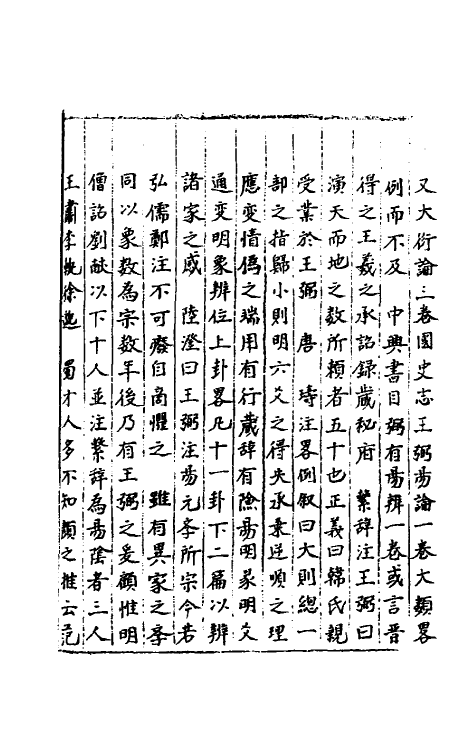 又大衍論三卷國史志王弼昜論一卷大類畧
例而不及　中興書目弼有昜辨一卷或言晉
得之王羲之承詔録歲秘府　繫辞注王弼曰
演天而地之数所頼者五十也正義曰韓氏親
受業於王弼　唐　璹注畧例叙曰大則總一
部之指歸小則明六爻之得失承乗逆順之理
應变情偽之端用有行蔵辞有險昜明彖明爻
通变明象辨位上卦畧凡十一卦下二篇以辨
諸家之惑　陸澄曰王弼注昜元夲所宗今若
弘儒鄭注不可癈自商懼之　雖有異家之夲
同以象数為宗数年後乃有王弼之爰顧惟明
僧詔劉献以下十人並注繫辞為昜隂者三人
王肅李𫝊徐邈　蜀才人多不知顔之推云范